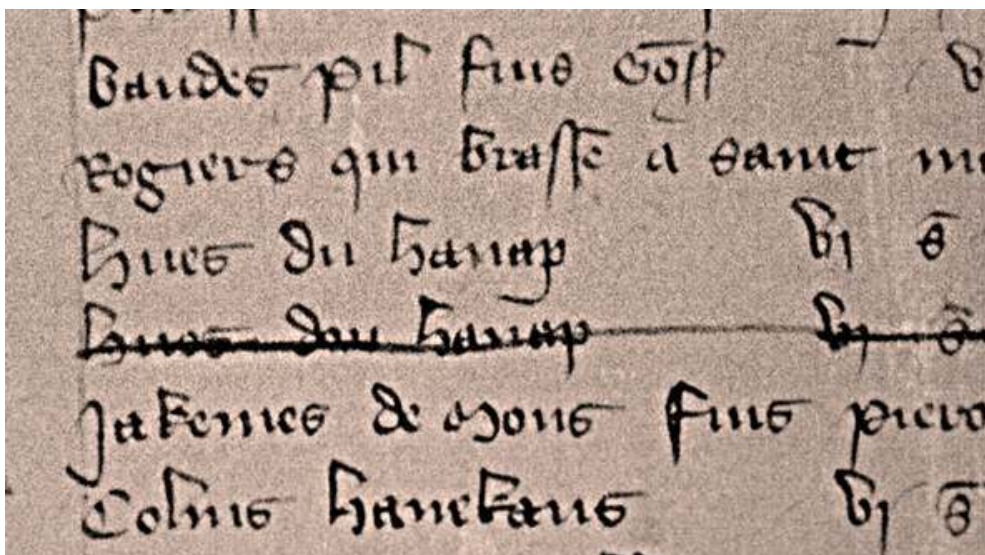 baudes pil fius Goss
Rogiers qui brasse a saint
hues du hanap vj s
hues dou hanap vj s
jakemes de mons fius piero
Colins hanekaus vj s